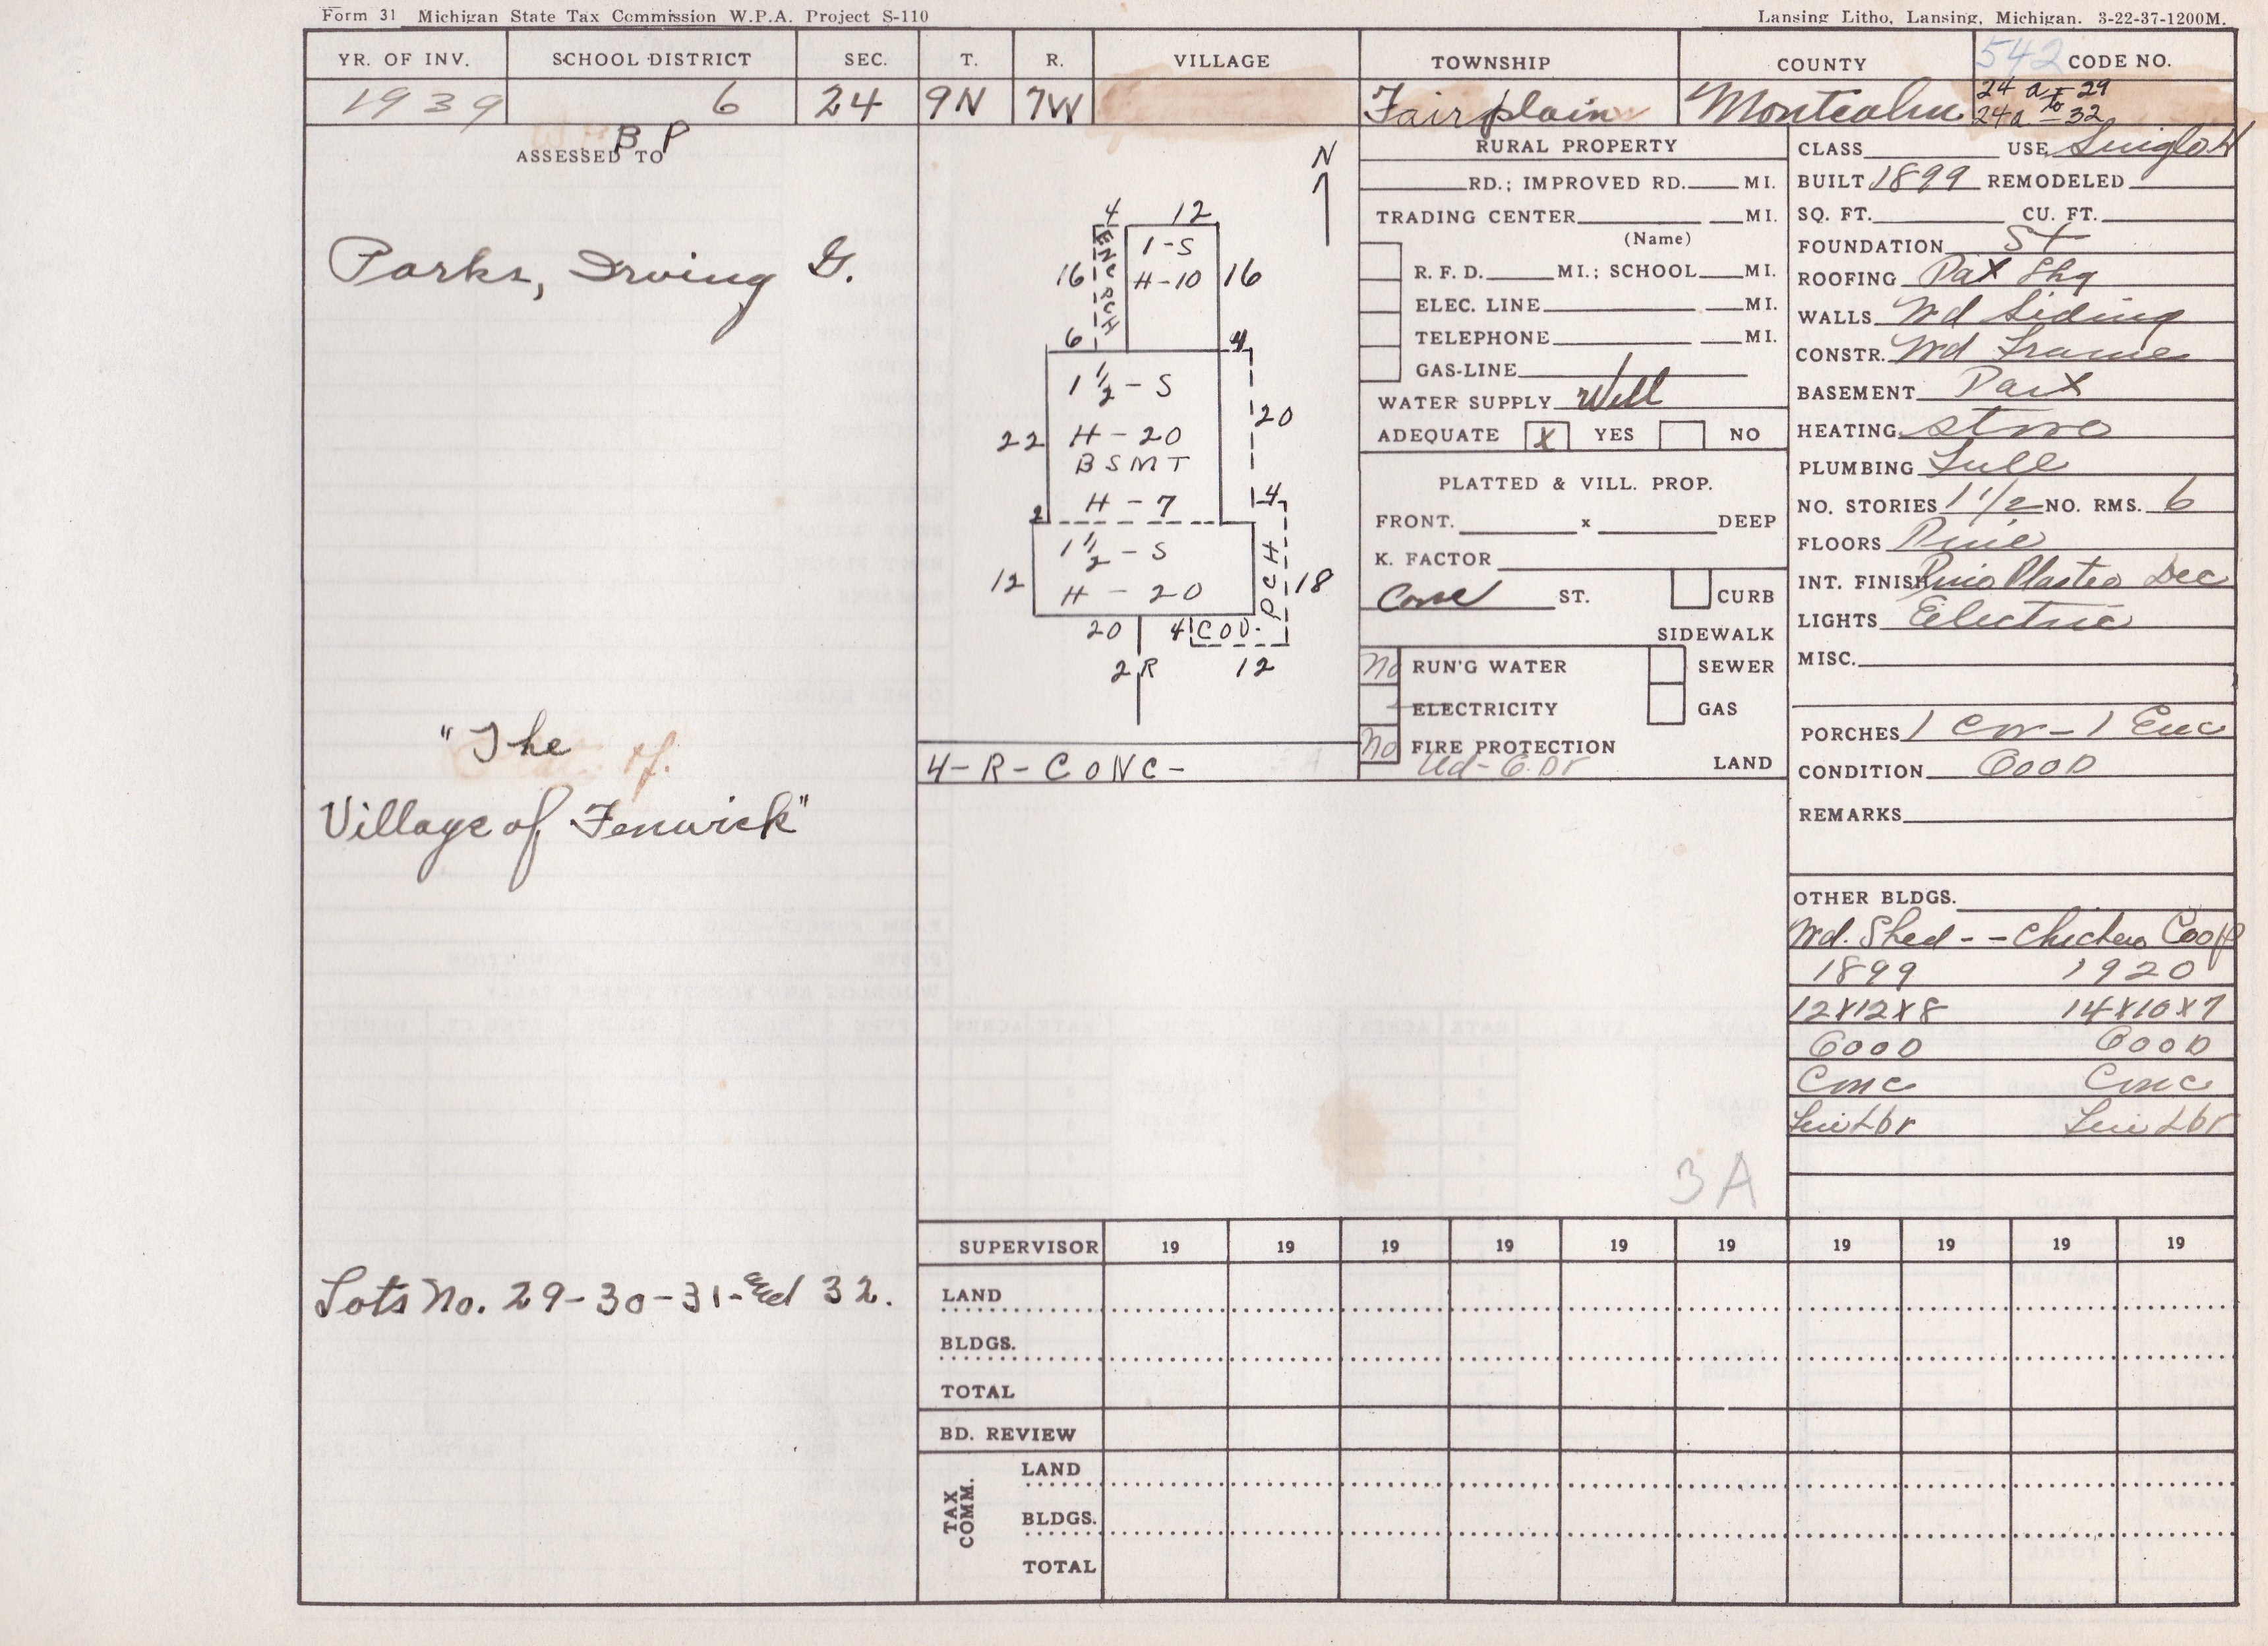 Form 31 Michigan State Tax Commission W.P.A. Project S-110
Lansing Litho, Lansing, Michigan. 3-22-37-1200M.
YR. OF INV. SCHOOL DISTRICT SEC. T. R. VILLAGE TOWNSHIP COUNTY 542 CODE NO.
1939 6 24 9N 7W Fairplain Montcalm 24 a - 29
to
24a - 32
B P
ASSESSED TO
Parks, Irving G.
"The
Village of Fenwick"
Lots No. 29-30-31-and 32.
N
4 12
1-S
16 ENC PCH H-10 16
6 4
1 1/2 - S
20
22 H-20
BSMT
H-7 4
2
1 1/2 - S
12 H-20 PCH 18
20 4 COV.
2R 12
4-R-CONC-
RURAL PROPERTY
RD.; IMPROVED RD. MI.
TRADING CENTER MI.
(Name)
R. F. D. MI.; SCHOOL MI.
ELEC. LINE MI.
TELEPHONE MI.
GAS-LINE
WATER SUPPLY Well
ADEQUATE X YES NO
PLATTED & VILL. PROP.
FRONT. x DEEP
K. FACTOR
Conc ST. CURB
SIDEWALK
No RUN'G WATER SEWER
ELECTRICITY GAS
No FIRE PROTECTION
LAND
CLASS USE
BUILT 1899 REMODELED
SQ. FT. CU. FT.
FOUNDATION St
ROOFING Pat Shg
WALLS Wd Siding
CONSTR. Wd Frame
BASEMENT Part
HEATING Stove
PLUMBING Full
NO. STORIES 1 1/2 NO. RMS. 6
FLOORS Pine
INT. FINISH Pine Plaster Dec
LIGHTS Electric
MISC.
PORCHES 1 Cov - 1 Enc
CONDITION GOOD
REMARKS
OTHER BLDGS.
Wd. Shed -- Chicken Coop
1899 1920
12X12X8 14X10X7
GOOD GOOD
Conc Conc
Lbr Lbr
3A
SUPERVISOR 19 19 19 19 19 19 19 19 19 19
LAND
BLDGS.
TOTAL
BD. REVIEW
TAX COMM.
LAND
BLDGS.
TOTAL